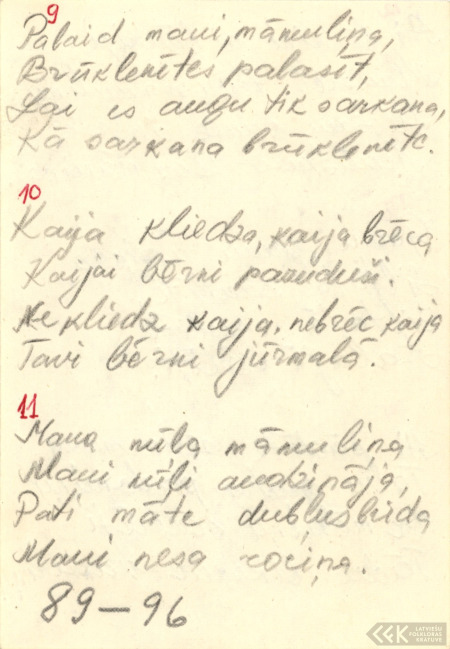 9
Palaid mani, māmuliņa,
Brūklenītes palasīt,
Lai es augu tik sarkana,
Kā sarkana brūklenīte.
10
Kaija kliedza, kaija brēca
Kaijai bērni pazuduši.
Nekliedz kaija, nebrēc kaija
Tavi bērni jūrmalā.
11
Mana mīļa māmuliņa
Mani mīļi audzināja,
Pati māte dubļus brida
Mani nesa rociņa.
89–96
LATVIEŠU
FOLKLORAS
KRĀTUVE